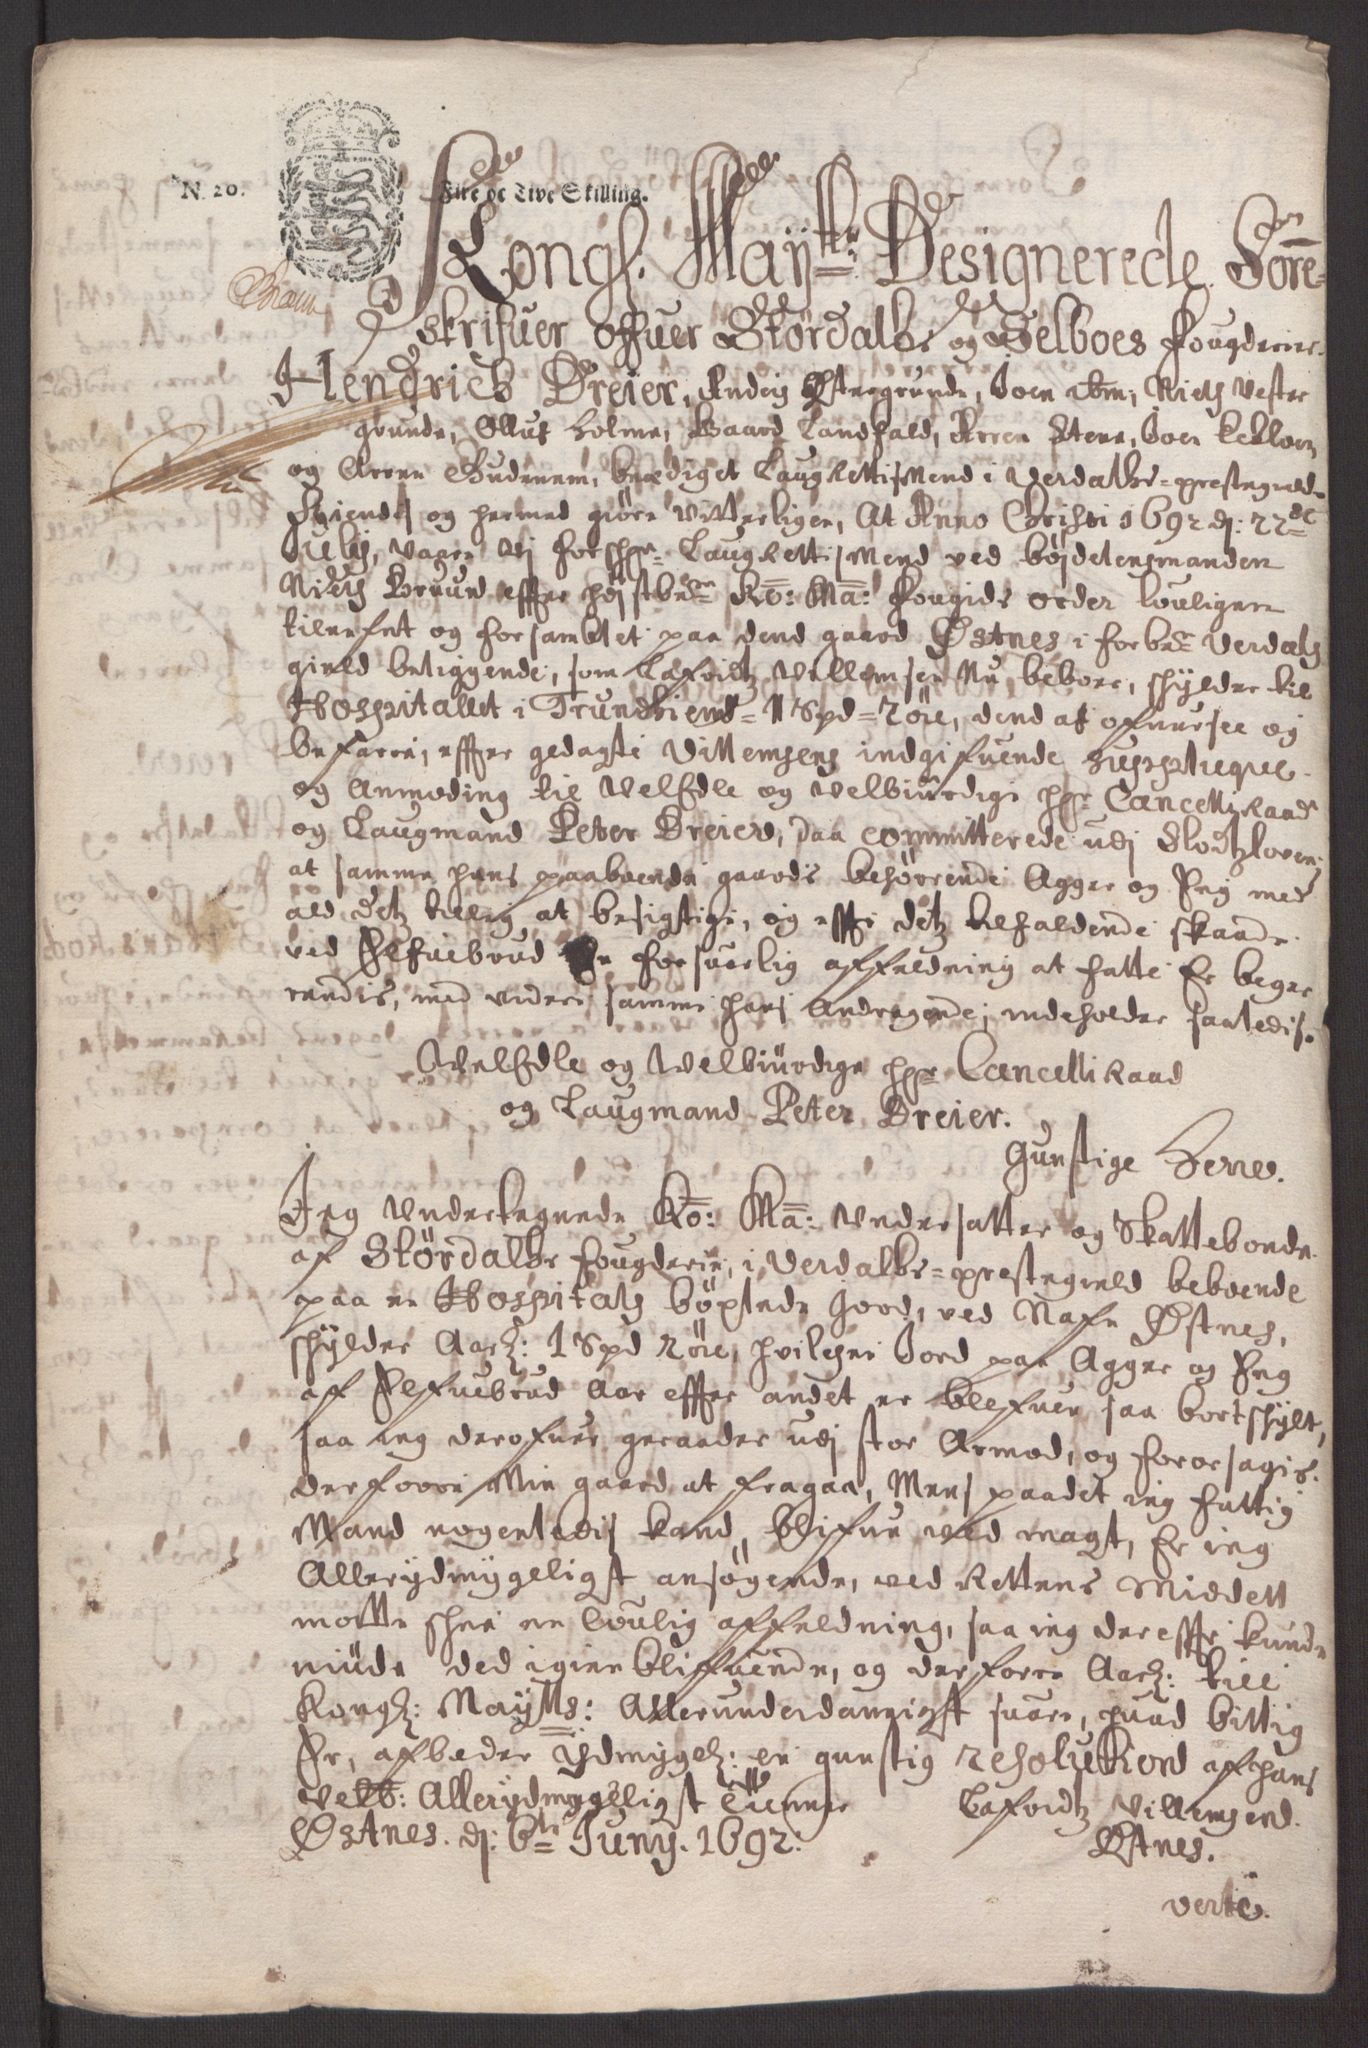 N. 20.
Fire oc Tive Skilling.
Kongl. Maÿtz Designerede Sore-
skrifuer offuer Størdals og Selboes fougderier
Hendrich Dreier, Anders Østergrunde, Joen Rom, Niels Vester
grunde, Olluf Holme, Baard Landfald, Arren Steen, Joen Eckloen
og Arren Gudenem, beædiget LaugRettismend i Verdals-prestegield
Kiendis og hermed giøre vitterligen, At Anno Christi 1692 dj: 22de
July, vaare vj forschr. LaugRettismend ved bøjdelensmanden
Niels Brund effter høystbem Ko: Ma: Fougids order louligen
tilnefnt og forsamblet paa dend gaard Østnes i forbem Verdals
gield beliggende, som Lafridtz Villemsen Nu beboer, schylder til
Hospitallet i Trundhiem 1 Spd 2 øre, dend at ofuersee og
befarre, effter gedagte Villemsens indgifuende Suppliqve
og Anmoding til VelEdle og velbiurdige hr Cancelli Raad
og Laugmand Peter Dreier, daa committerede udj Slodtzloven
at samme hans paaboende gaards behørende Agger og Eng med
ald detz tilleg at besigtige, og effter detz tilfaldende skaade
ved Elfuebrud En forsuarlig affeldning at fatte Er begie
rendis, med videre samme hans Andragende, indeholder saaledis.
VelEdle og Velbiurdige hr Cancelli Raad
og Laugmand Peter Dreier.
Gunstige Herre.
Jeg Undertegnede Ko: Ma: Undersatter og Skattebonde
af Størdals fougderie, i Verdals-prestegield beboende
paa en Hospitals bøxlede Jord, ved Nafn Østnes,
schylder Aarl: 1 Spd 2 øre, hvilchen Jord paa Agger og Eng
af Elfuebrud Aar effter andet er blefuen saa bortschylt,
saa ieg derofuer geraader udj stor Armod, og foraarsagis
derfoore Min gaard at fragaa, Mens paadet ieg fattig
Mand nogenledis kand blifue ved magt, Er ieg
Allerydmygeligst ansøgende, ved Rettens Middell
motte schee en loulig affeldning, saa ieg dereffter kunde
niude ded igienblifuende, og derforre Aarl: till
Kongl: Mayts: Allerunderdanigst suare, huad billig
Er, afbeder ydmygel: en gunstig resolution af hans
Velb: Allerydmygeligst Tienner Lafridtz Villemsend.
Østnes. dj: 6te Juny. 1692. Østnes.
verte.